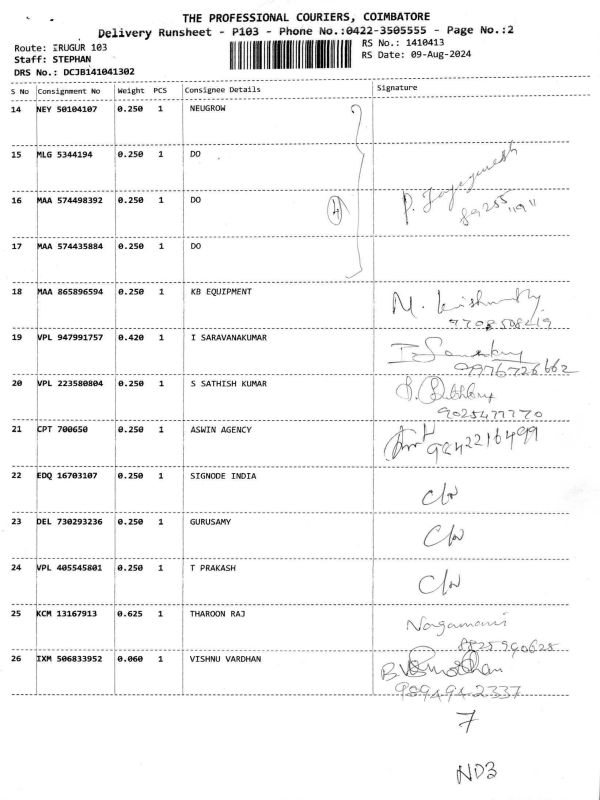 THE PROFESSIONAL COURIERS, COIMBATORE
Delivery Runsheet - P103 - Phone No.:0422-3505555 - Page No.:2
Route: IRUGUR 103
RS No.: 1410413
Staff: STEPHAN
RS Date: 09-Aug-2024
DRS No.: DCJB141041302
S No Consignment No Weight PCS Consignee Details Signature
14 NEY 50104107 0.250 1 NEUGROW
15 MLG 5344194 0.250 1 DO
16 MAA 574498392 0.250 1 DO 4 P.
17 MAA 574435884 0.250 1 DO
18 MAA 865896594 0.250 1 KB EQUIPMENT M.
19 VPL 947991757 0.420 1 I SARAVANAKUMAR
9976726662
20 VPL 223580804 0.250 1 S SATHISH KUMAR
9025477770
21 CPT 700650 0.250 1 ASWIN AGENCY 9842216499
22 EDQ 16703107 0.250 1 SIGNODE INDIA
23 DEL 730293236 0.250 1 GURUSAMY
24 VPL 405545801 0.250 1 T PRAKASH
25 KCM 13167913 0.625 1 THAROON RAJ Nagamani
8825990625
26 IXM 506833952 0.060 1 VISHNU VARDHAN
9894942337
7
ND3